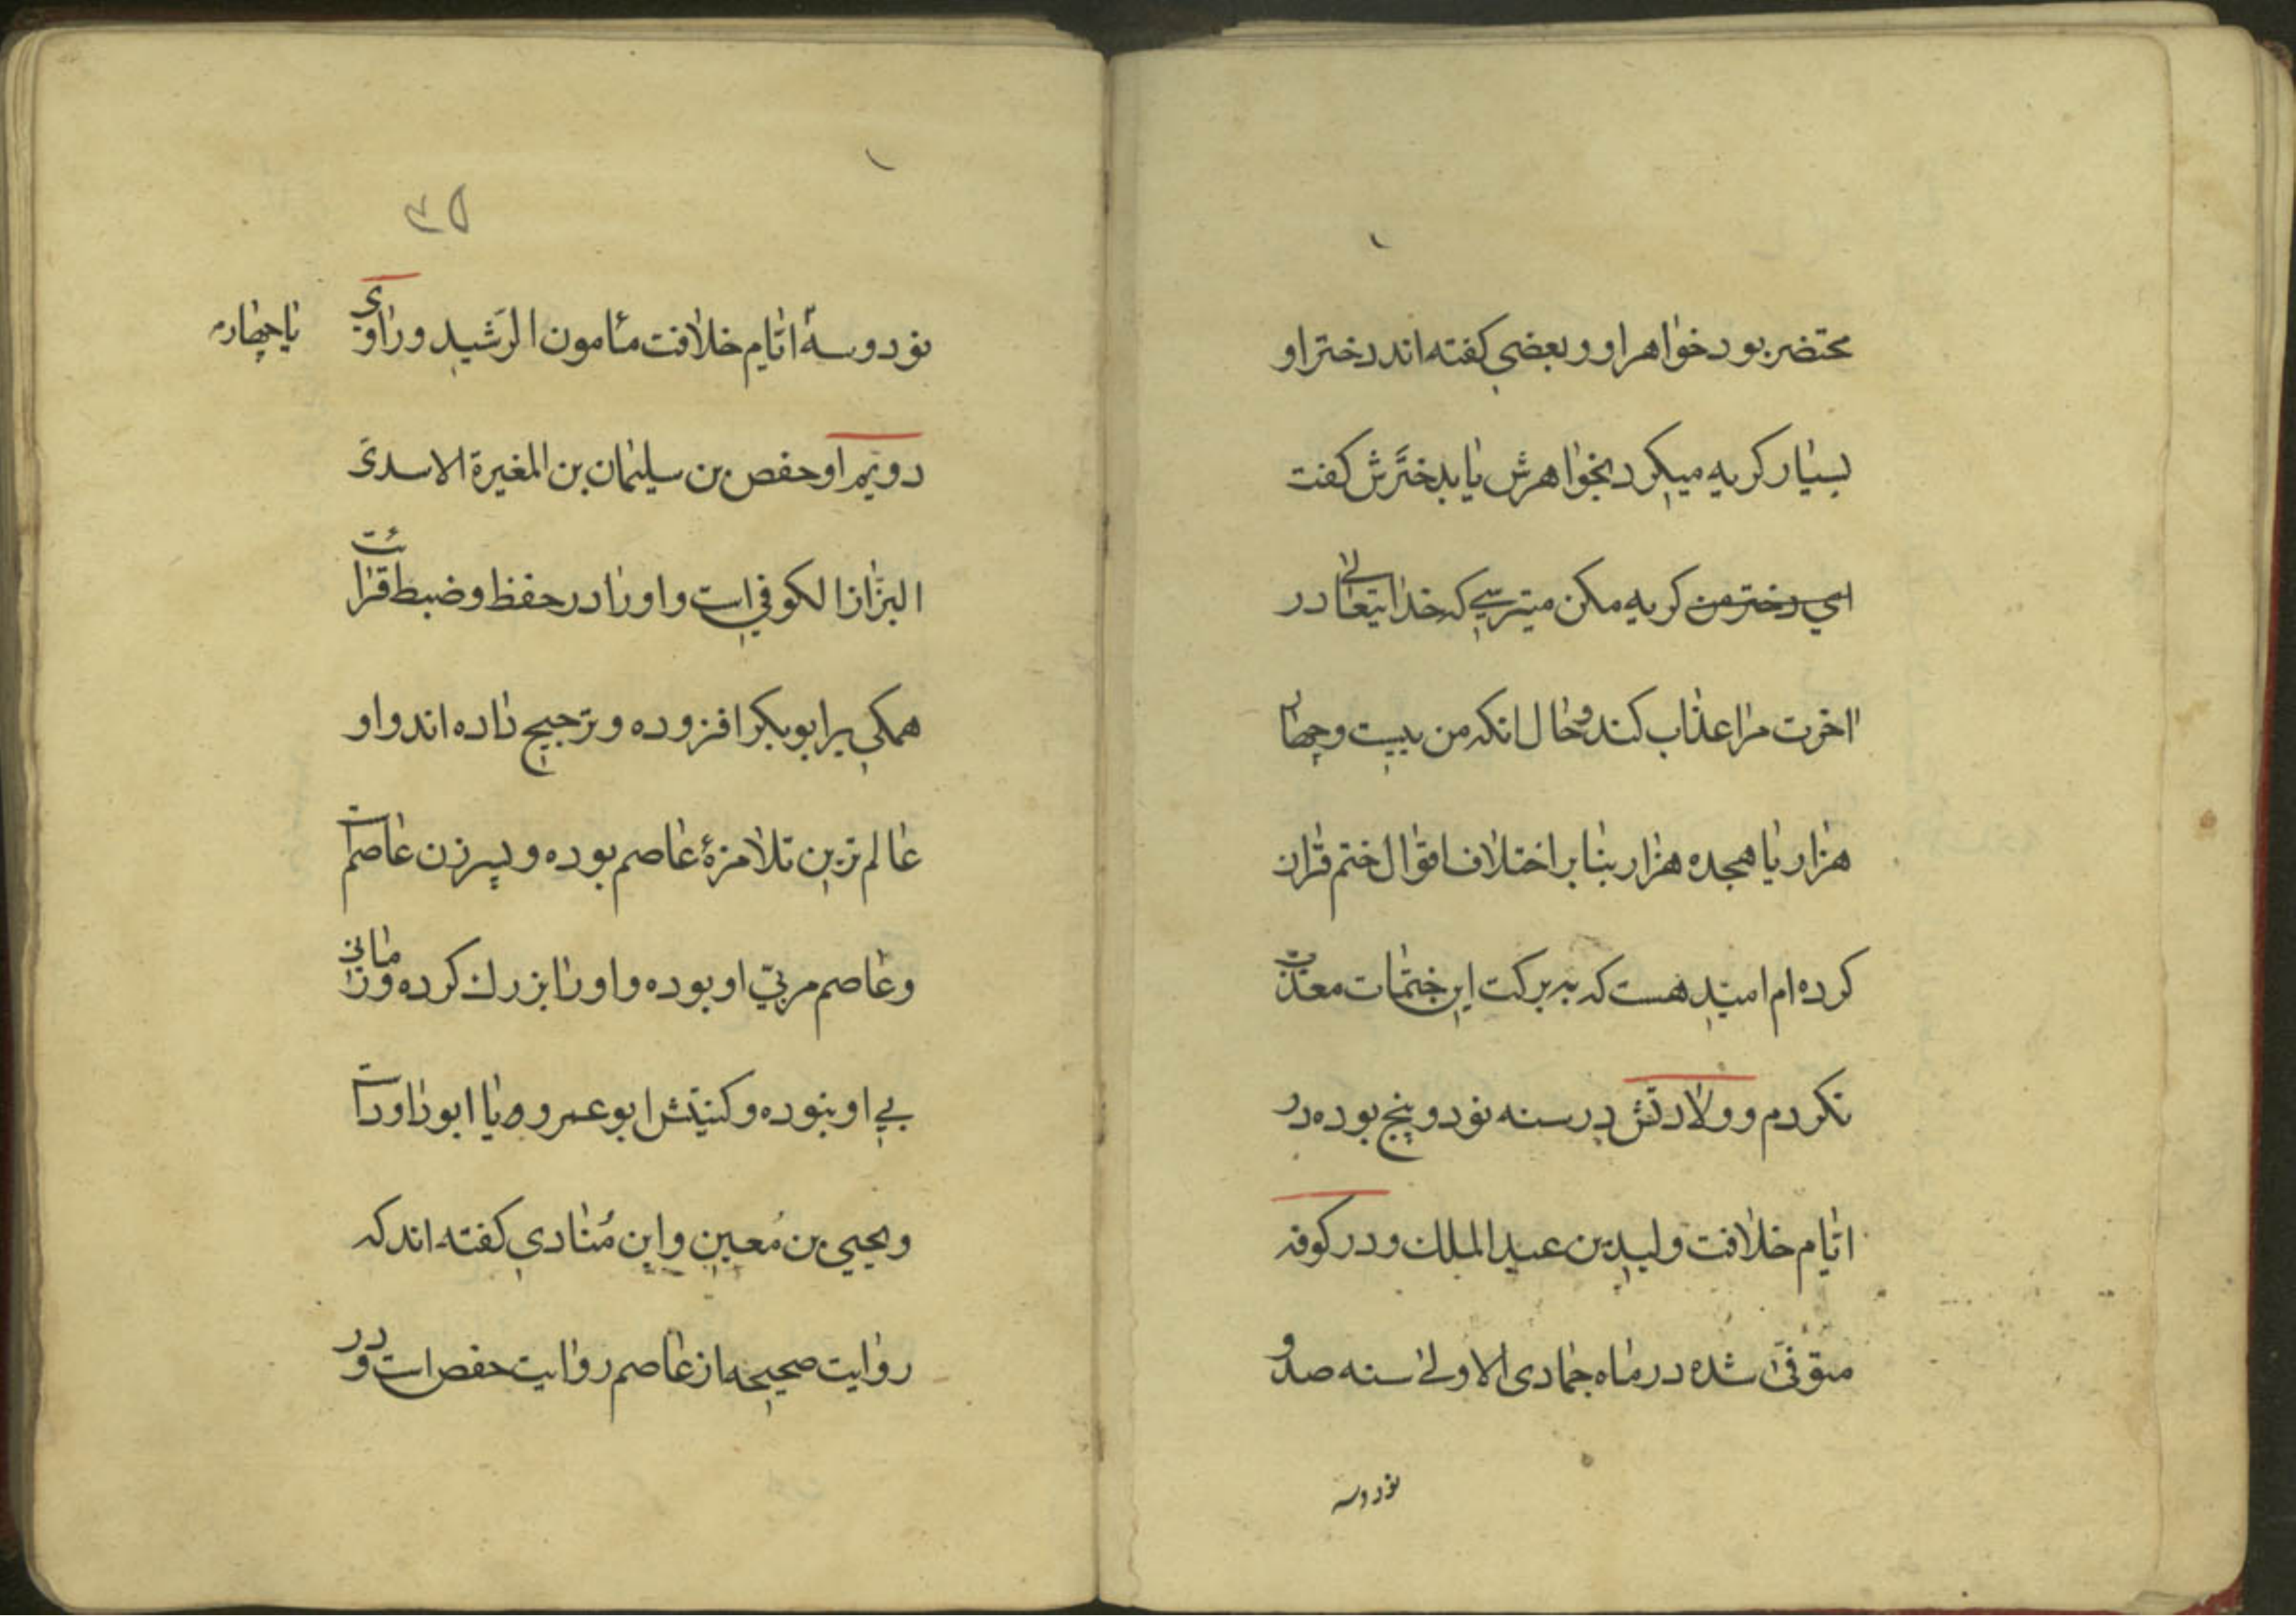 محتضر بود خواهر او و بعضی کفته اند دختر او
بسیار کریه میکرد بخواهرش یا بدخترش کفت
ای دختر من کریه مکن میترسی که خدایتعالی در
اخرت مرا عذاب کند و حال انکه من بیست و چهار
هزار یا هجده هزار بنا بر اختلاف اقوال ختم قران
کرده ام امید هست که به برکت این ختمات معذب
نکردم و ولادتش در سنه نود و پنج بوده در
ایام خلافت ولید بن عبد الملک و در کوفه
متوفی شده در ماه جمادی الاولی سنه صد و
نود و سه
۳۵
نود و سه ایام خلافت مأمون الرشید و راوی
یا چهارم
دویم او حفص بن سلیمان بن المغیرة الاسدی
البزاز الکوفی است و او را در حفظ و ضبط قرائت
همکی بر ابو بکر افزوده و ترجیح داده اند و او
عالم ترین تلامزۀ عاصم بوده و پسر زن عاصم است
و عاصم مربی او بوده و او را بزرک کرده و زمانی
بی او نبوده و کنیتش ابو عمرو و یا ابو داود است
و یحیی بن معین و ابن مُنادی کفته اند که
روایت صحیحه از عاصم روایت حفص است و در